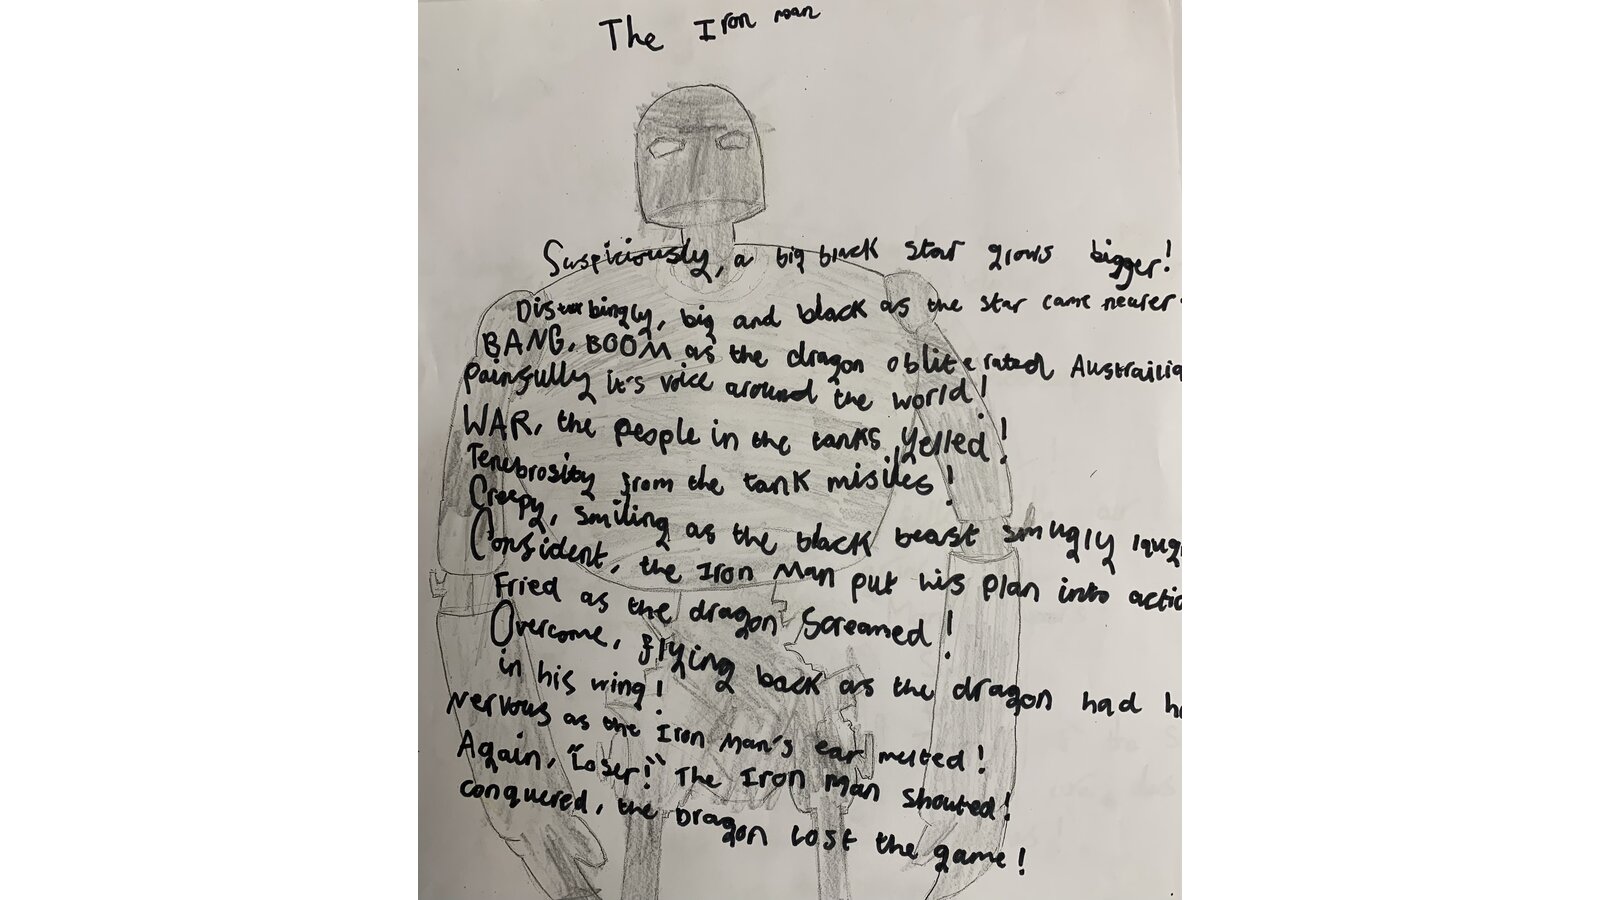 The Iron man
Suspiciously, a big black star grows bigger!
Disturbingly, big and black as the star came nearer
BANG, BOOM as the dragon obliterated Austrailia
painfully it's voice around the world!
WAR, the people in the tanks yelled!
Tenebrosity from the tank misiles!
Creepy, smiling as the black beast smugly laug
Confident, the Iron Man put his plan into actio
Fried as the dragon screamed!
Overcome, flying back as the dragon had
in his wing!
Nervous as the Iron Man's ear melted!
Again, "Loser!" The Iron Man shouted!
conquered, the Dragon lost the game!